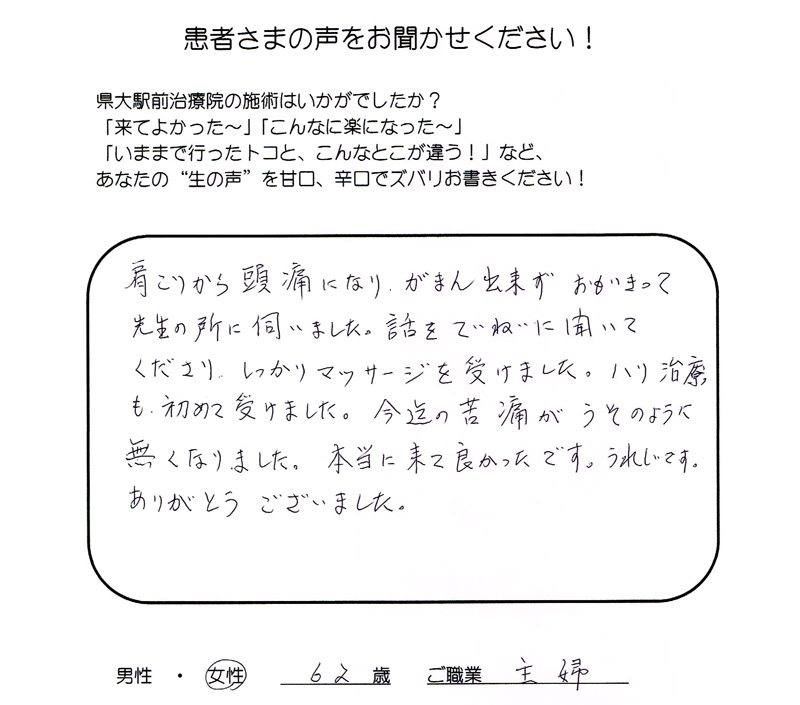 患者さまの声をお聞かせください！
県大駅前治療院の施術はいかがでしたか？
「来てよかった～」「こんなに楽になった～」
「いままで行ったトコと、こんなとこが違う！」など、
あなたの“生の声”を甘口、辛口でズバリお書きください！
肩こりから頭痛になり、がまん出来ず おもいきって
先生の所に伺いました。話をていねいに聞いて
くださり、しっかりマッサージを受けました。ハリ治療
も、初めて受けました。今迄の苦痛がうそのように
無くなりました。本当に来て良かったです。うれしいです。
ありがとうございました。
男性 ・ 女性 62 歳 ご職業 主婦